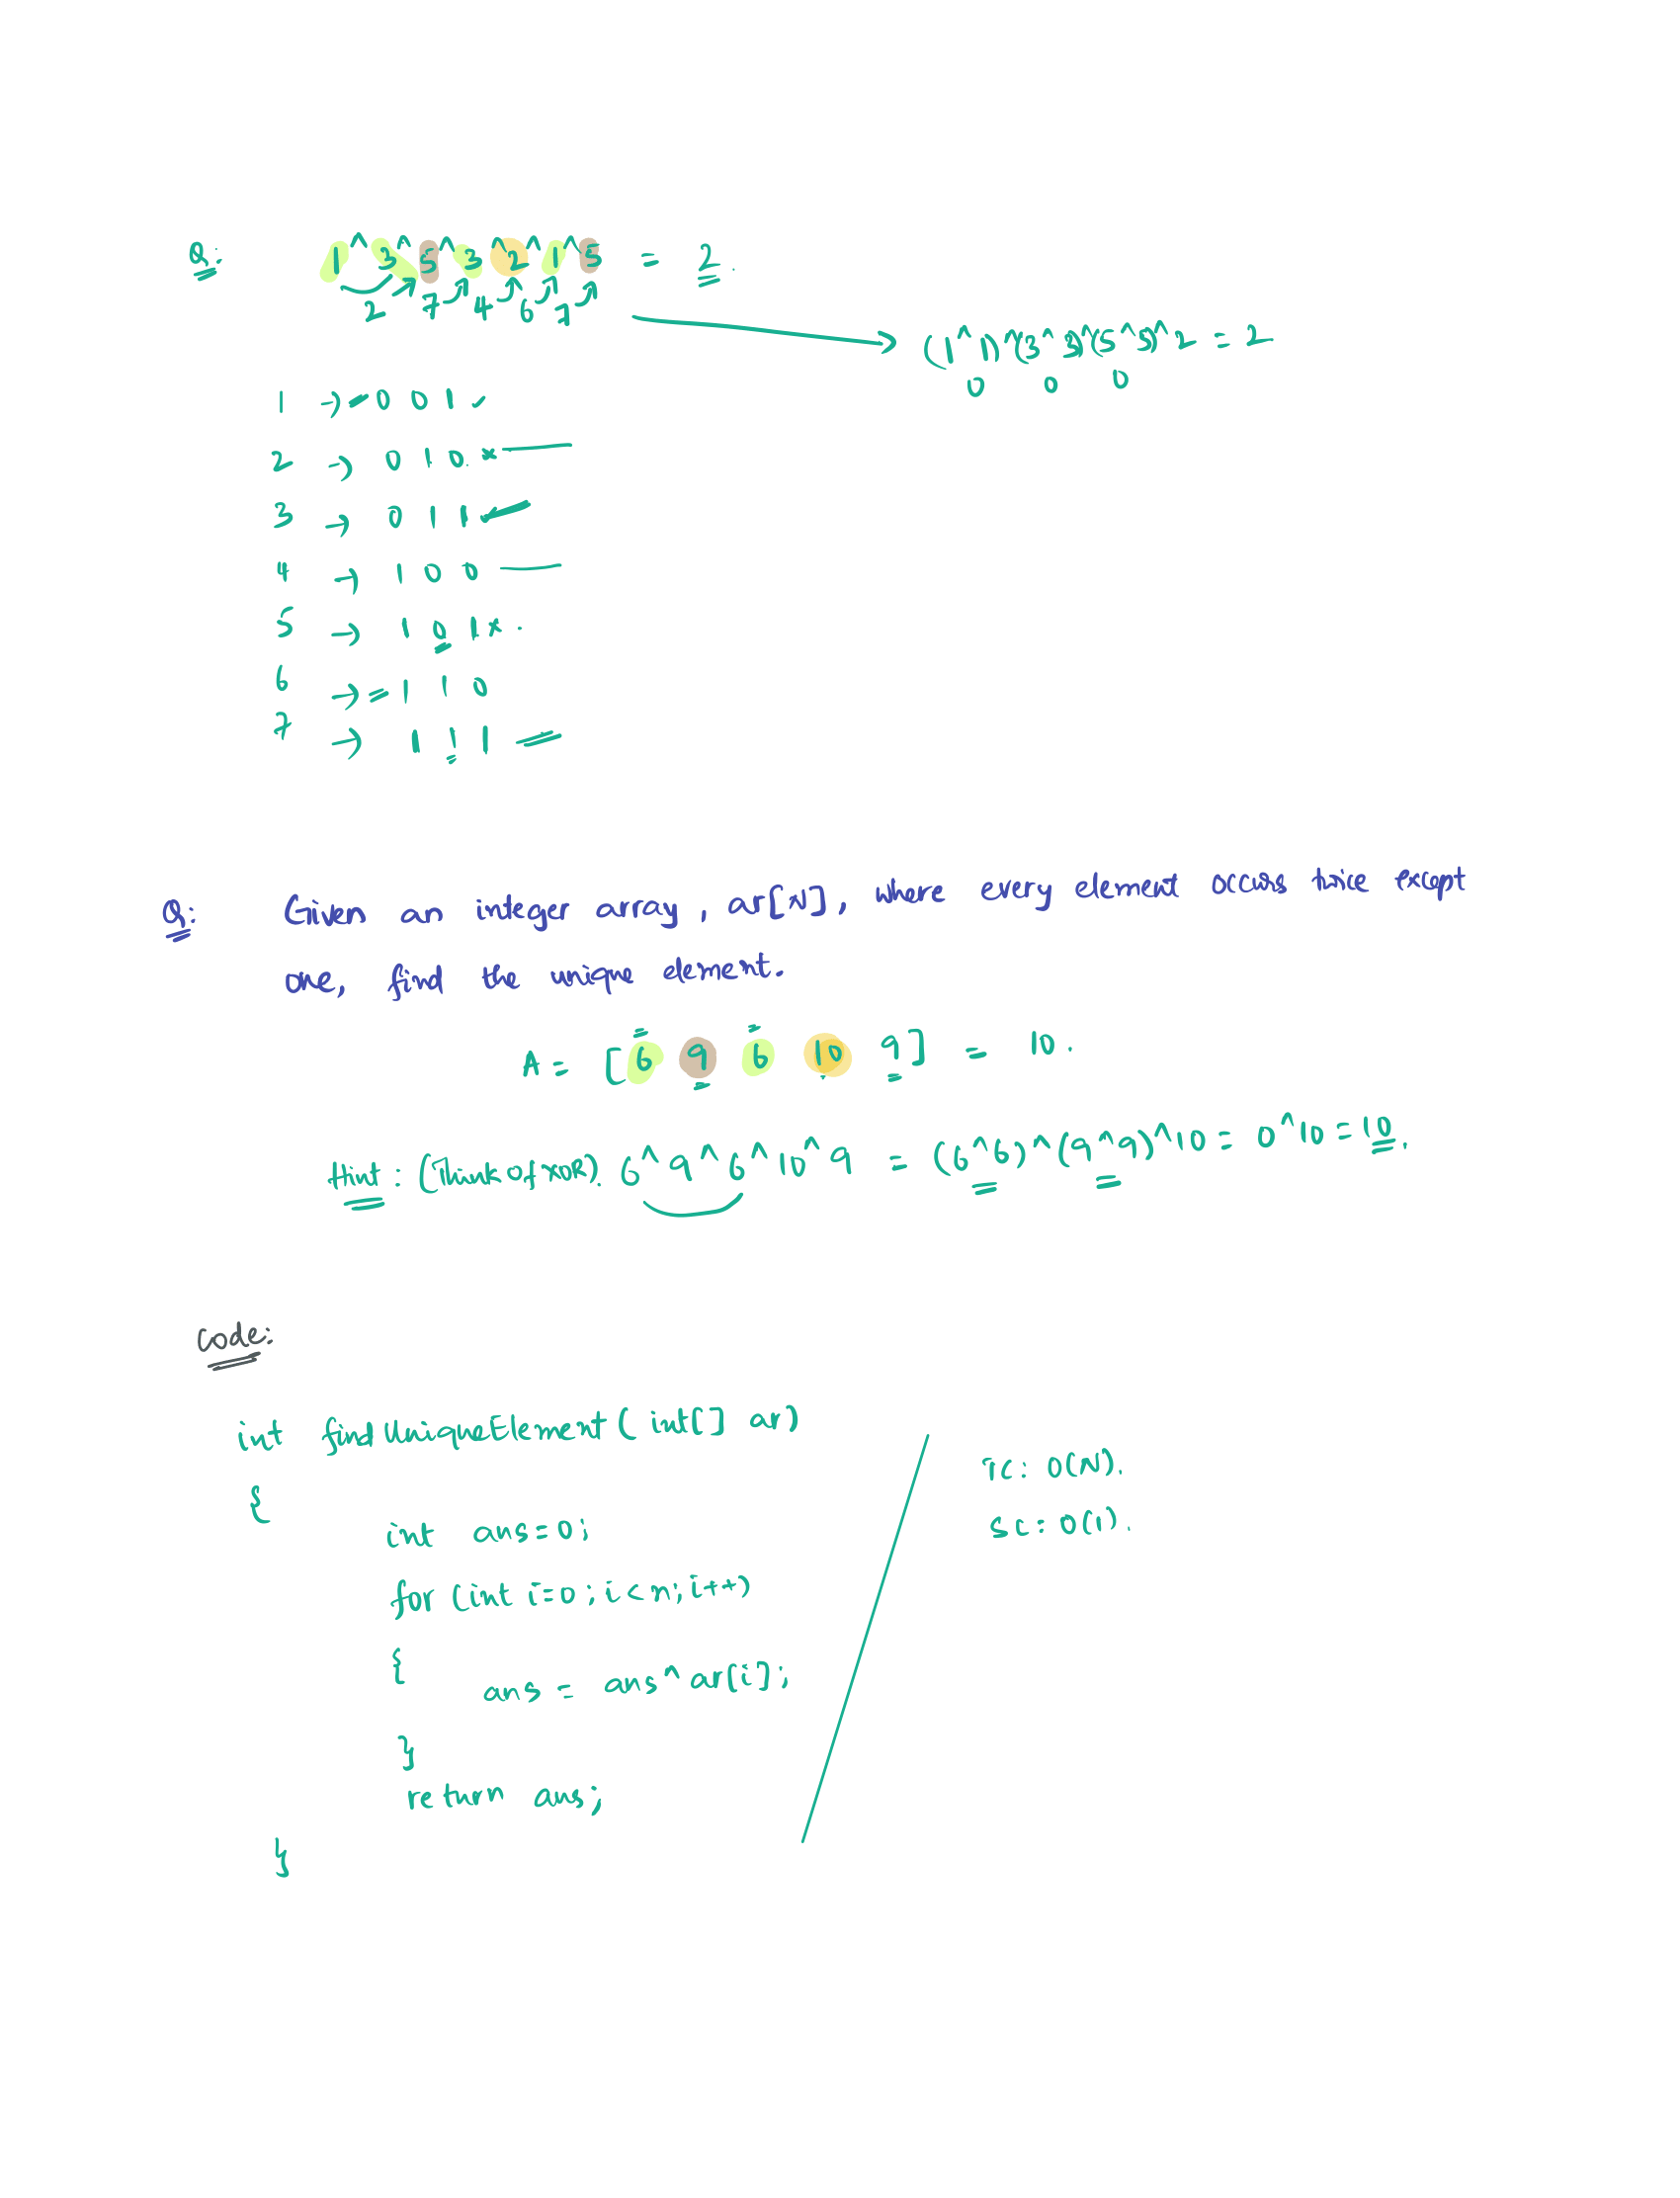 Q: 1^3^5^3^2^1^5 = 2.
2 7 4 6 7
(1^1)^(3^3)^(5^5)^2 = 2
0 0 0
1 → 0 0 1
2 → 0 1 0
3 → 0 1 1
4 → 1 0 0
5 → 1 0 1
6 → 1 1 0
7 → 1 1 1
Q: Given an integer array, ar[N], where every element occurs twice except
one, find the unique element.
A = [6 9 6 10 9] = 10.
Hint: (Think of XOR). 6^9^6^10^9 = (6^6)^(9^9)^10 = 0^10 = 10.
Code:
int findUniqueElement( int[] ar)
{
int ans=0;
for (int i=0; i<n; i++)
{
ans = ans^ar[i];
}
return ans;
}
TC: O(N).
SC: O(1).